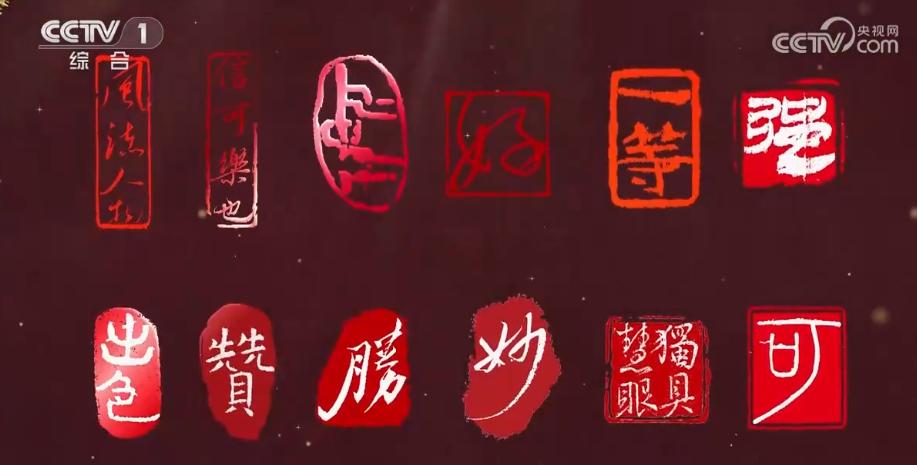 CCTV 1
综合
央视网
CCTV.com
風流人物
信可樂也
好
一等
强
出色
贊
勝
妙
獨具慧眼
可